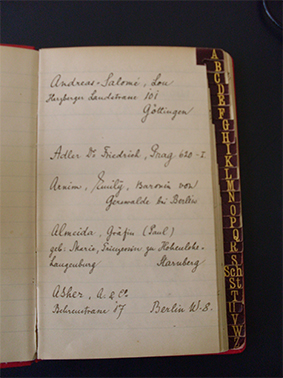 Andreas-Salomé, Lou
Herzberger Landstrasse 101
Göttingen
Adler Dr Friedrich, Prag 620-I.
Arnim, Emily, Baronin von
Gerswalde bei Berlin
Almeida, Gräfin (Paul)
geb. Marie, Prinzessin zu Hohenlohe-
Langenburg Starnberg
Asher, A. & Co.
Behrenstrasse 17 Berlin W-8.
A
B
C
D
E
F
G
H
I
K
L
M
N
O
P
Q
R
S
Sch
St
T
U
V
W